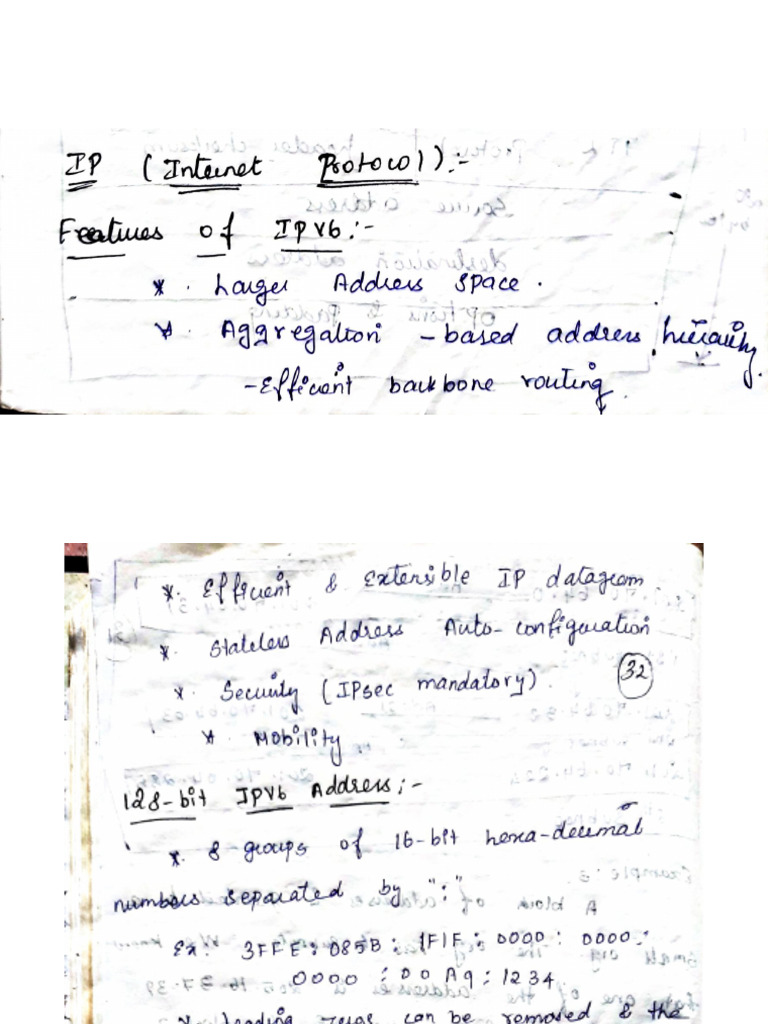 IP (Internet Protocol):-
Features of IPV6:-
* . Larger Address space .
* . Aggregation - based address hierarchy.
- Efficient backbone routing.
* . Efficient & Extensible IP datagram
* . Stateless Address Auto-configuration
* . Security (IPsec mandatory). 32
* . Mobility
128-bit IPV6 Address:-
* . 8 groups of 16-bit hexa-decimal
numbers separated by ":"
Ex: 3FFE:085B:1F1F:0000:0000:
0000:00A9:1234
* Leading zeros can be removed & the